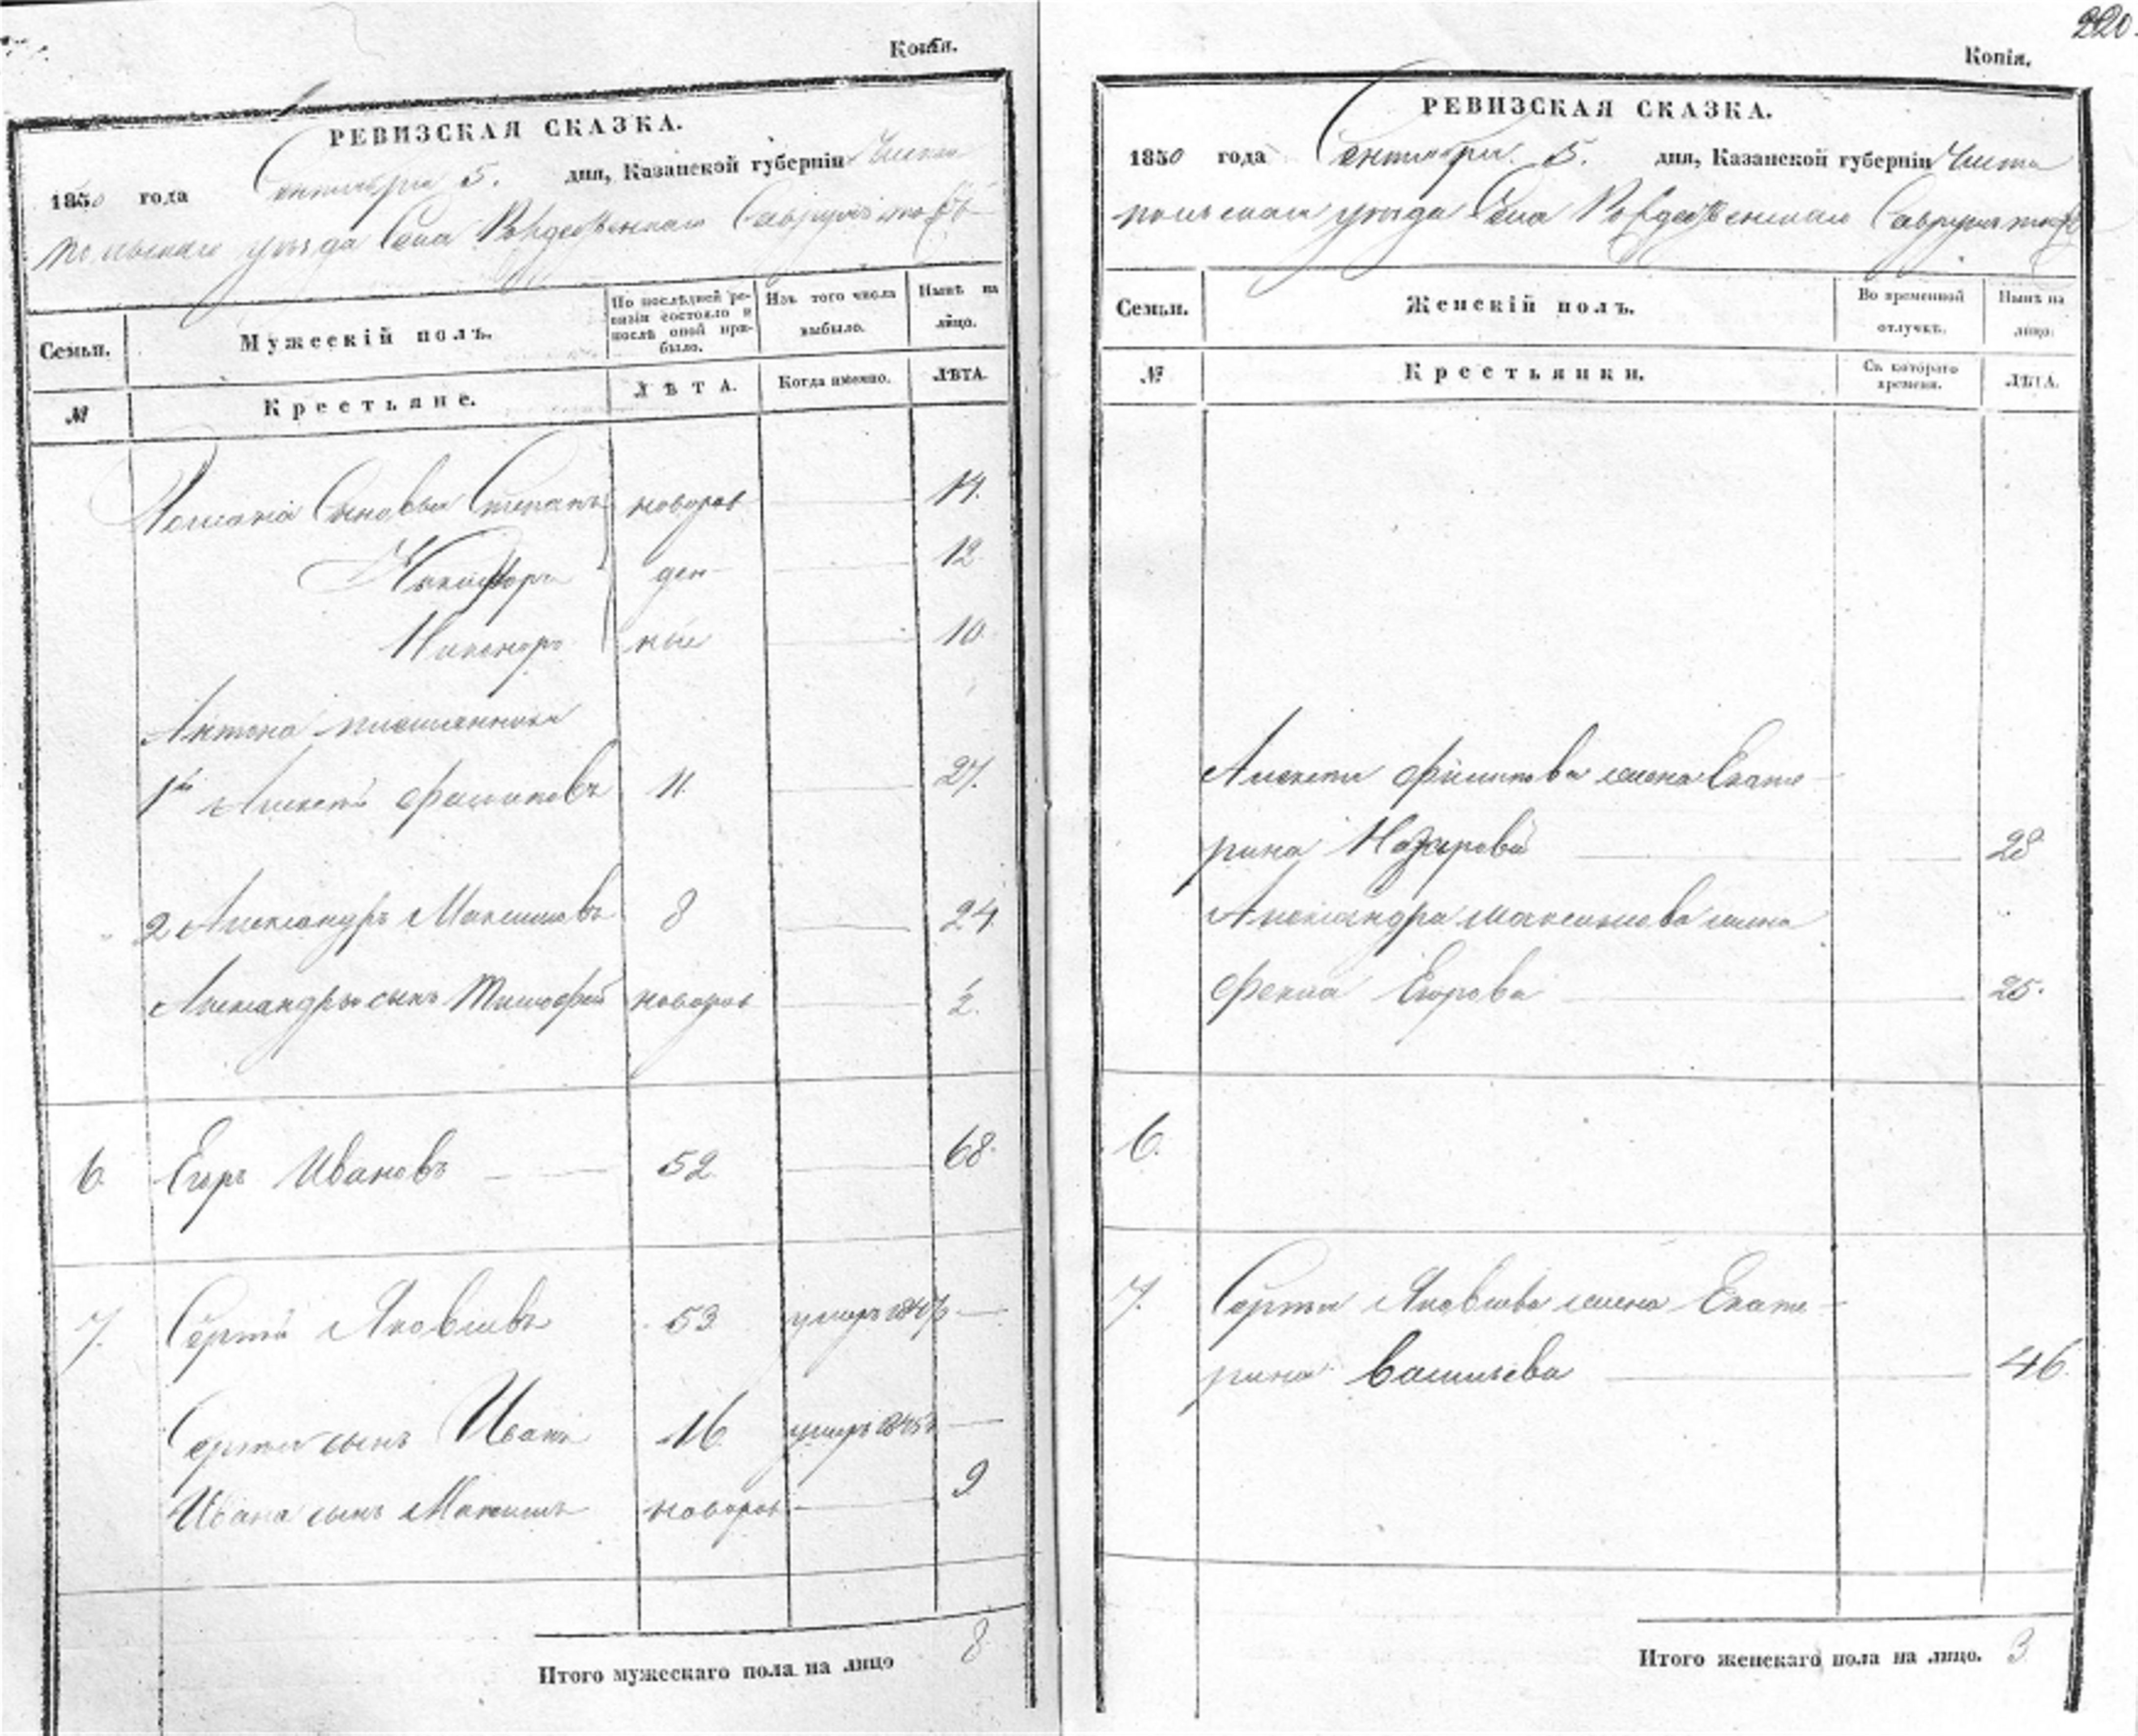 Копія.
РЕВИЗСКАЯ СКАЗКА.
1850 года Сентября 5. дня, Казанской губерніи Чисто
польскаго уѣзда Села Рождественскаго
Семьи.
Мужескій полъ.
По послѣдней ре-
визіи состояло и
послѣ оной при-
было.
Изъ того числа
выбыло.
Нынѣ на
лицо.
№
Крестьяне.
ЛѢТА.
Когда именно.
ЛѢТА.
сыновья Степанъ новорож 14.
Никифоръ ден 12.
Никоноръ ные 10.
Антона племянники
1й Алексѣй Филиповъ 11. 27.
2 Александръ Максимовъ 8 24.
Александры сынъ Тимофей новорож 2.
6. Егоръ Ивановъ 52 68.
7. Сергѣй Яковлевъ 53 умеръ
Сергѣя сынъ Иванъ 16 умеръ 1845
Ивана сынъ Максимъ новорож 9
Итого мужескаго пола на лицо 8
220.
Копія.
РЕВИЗСКАЯ СКАЗКА.
1850 года Сентября 5. дня, Казанской губерніи Чисто
польскаго уѣзда Села Рождественскаго
Семьи.
Женскій полъ.
Во временной
отлучкѣ.
Нынѣ на
лицо.
№
Крестьянки.
Съ котораго
времени.
ЛѢТА.
Алексѣя Филипова жена Екате-
рина Назарова 28
Александра Максимова жена
Фекла Егорова 25.
6.
7. Сергѣя Яковлева жена Екате-
рина Васильева 46.
Итого женскаго пола на лицо. 3